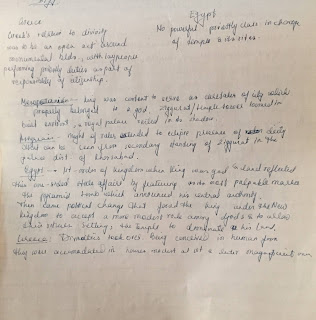 Greece
Greek's relation to divinity
was to be an open act around
monumental bldn, with laypeople
performing priestly duties as part of
responsibility of citizenship.
Egypt
No powerful priestly class in charge
of temple & its rites.
Mesopotamian - king was content to serve as caretaker of city which
properly belonged to a god. ziggurat/temple tower loomed in
built context & royal palace in its shadow.
Assyrian - might of rulers extended to eclipse presence of deity
that can be seen from secondary standing of ziggurat in the
palace dist of Khorsabad.
Egypt - It order of kingdom when king was god & land reflected
this one-sided state affairs by featuring on its most palpable marker
the pyramid tomb which announced his central authority.
Then came political change that forced the king under the New
kingdom to accept a more modest role among gods & to allow
their temple to dominate his land.
Greece - Divinities took over being conceived in human form
they were accommodated in houses, modest at 1st & later magnificent ones